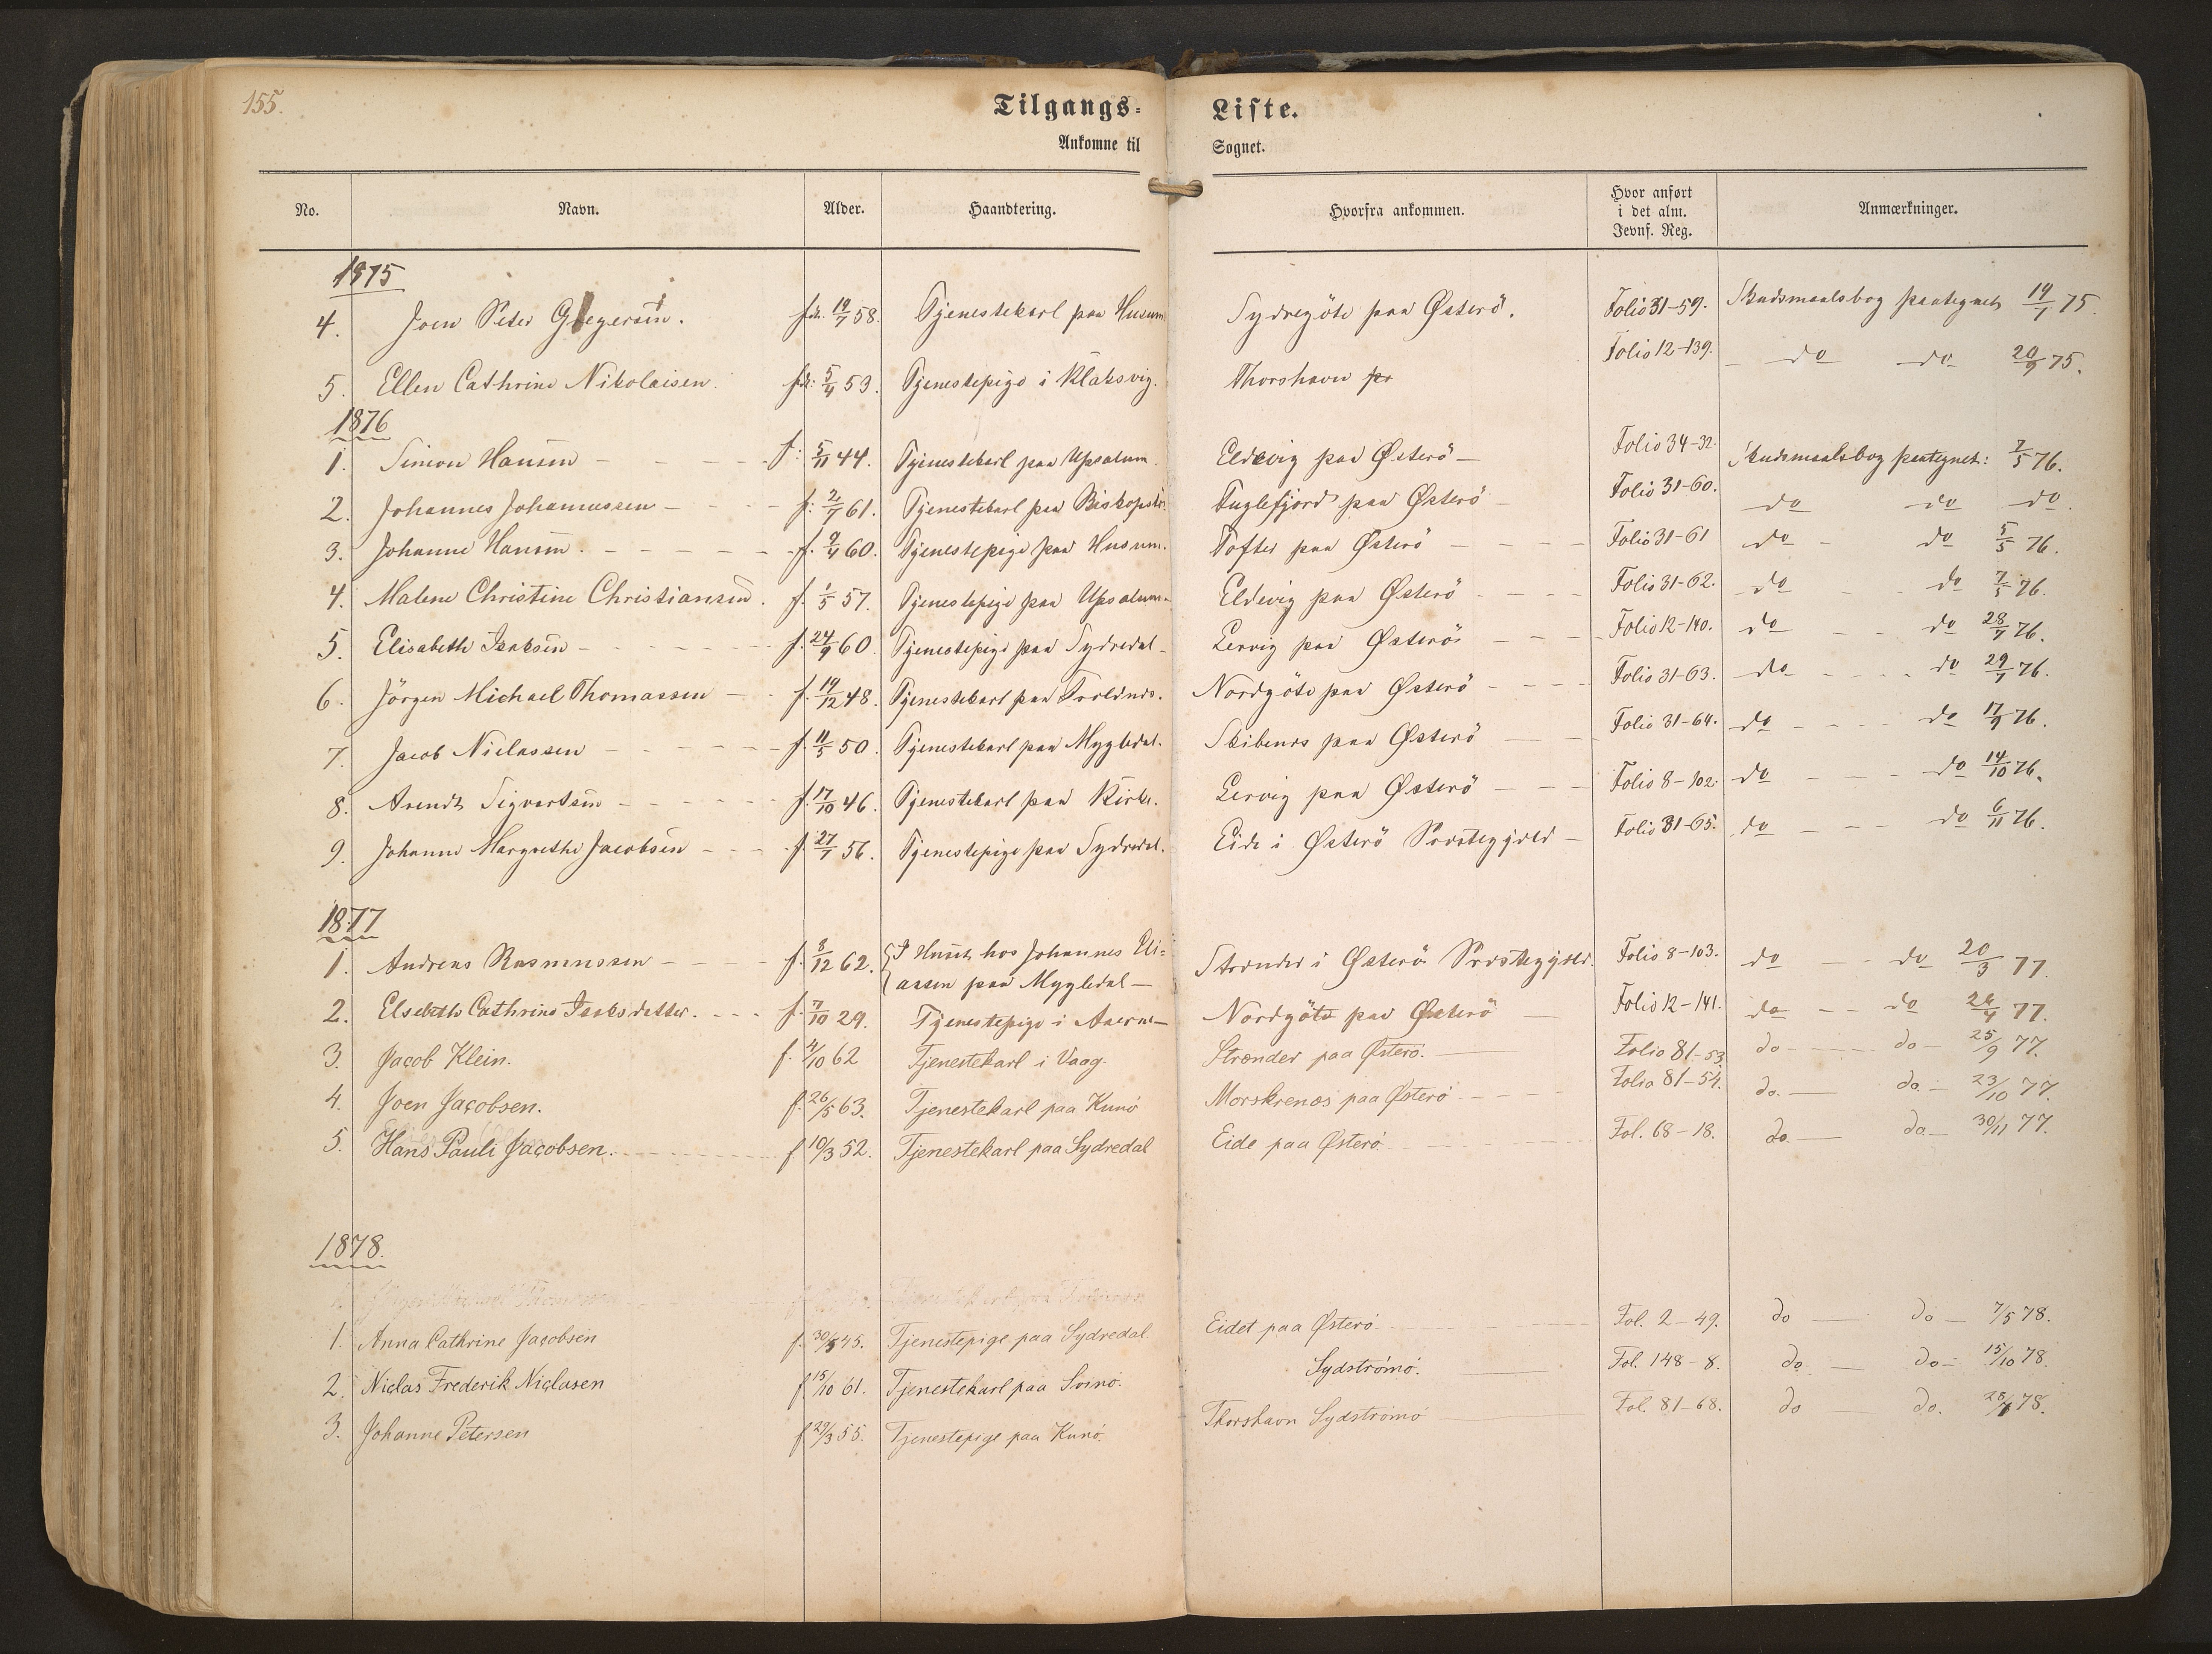 155.
Tilgangs= Liste.
Ankomne til Sognet.
No. Navn. Alder. Haandtering. Hvorfra ankommen. Hvor anført i det alm. Jevnf. Reg. Anmærkninger.
1875
4. Joen Peter Gregersen. fdt. 19/7 58. Tjenestekarl paa Husum Sydregöte paa Österö. Folio 31-59. Skudsmaalsbog paategnet 14/7 75.
5. Ellen Cathrine Nikolaisen. fdt: 5/4 53. Tjenestepige i Klaksvig. Thorshavn Folio 12-139. - do do 20/9 75.
1876
1. Simon Hansen - - - f: 5/11 44. Tjenestekarl paa Upsalum. Eldevig paa Østerö - Folio 34-32. Skudsmaalsbog paategnet: 7/5 76.
2. Johannes Johannessen - - - f: 2/7 61. Tjenestekarl paa Fuglefjord paa Østerö - Folio 31-60. do do do.
3. Johanne Hansen. - - - f. 9/4 60. Tjenestepige paa Husum. Tofter paa Østerö - - - Folio 31-61 do - do 5/5 76.
4. Malene Christine Christiansen. f. 1/5 57. Tjenestepige paa Upsalum - Eldevig paa Österö - - - Folio 31-62. do do 7/5 76.
5. Elisabeth Isaksen - - - f. 24/9 60. Tjenestepige paa Sydredal - Lervig paa Österö - - - Folio 12-140. do - - do 28/7 76.
6. Jörgen Michael Thomassen - - f. 19/12 48. Tjenestekarl paa Troldnes. Nordgöte paa Østerö - - - Folio 31-63. do - - do 29/7 76.
7. Jacob Niclassen - - - f. 11/5 50. Tjenestekarl paa Mygledal. Skibenes paa Østerö - Folio 31-64. do - - do 17/9 76.
8. Arendt Sigvartsen - - - f. 17/10 46. Tjenestekarl paa Kirke. Lervig paa Østerö - - Folio 8-102. do - - do 14/10 76.
9. Johanne Margrethe Jacobsen - - - f. 27/7 56. Tjenestepige paa Sydredal. Eide i Østerö Præstegjeld - Folio 31-65. do - - do 6/11 76.
1877
1. Andreas Rasmussen - - - f. 8/12 62. I Huset hos Johannes Eli= Strænder i Østerö Præstegjeld. Folio 8-103. do - do 20/3 77.
assen paa Mygledal -
2. Elsebeth Cathrine Isaksdatter. - - - f. 7/10 29. Tjenestepige i Aaerne - Nordgöte paa Østerö - Folio 12-141. do - - do 24/4 77.
3. Jacob Klein. f. 4/10 62 Tjenestekarl i Vaag. Strænder paa Østerö. - Folio 81-53. do - do - 25/9 77.
4. Joen Jacobsen. f. 26/5 63. Tjenestekarl paa Kunö Morskrenæs paa Österö - - - Folio 81-54. do. - do - 23/10 77.
5. Hans Pauli Jacobsen. - - - f 10/3 52. Tjenestekarl paa Sydredal Eide paa Österö - - - Fol. 68-18. do. - do - 30/11 77.
1878.
1. Anna Cathrine Jacobsen f. 30/8 45. Tjenestepige paa Sydredal Eidet paa Österö. - - - Fol. 2-49. do - do - 7/5 78.
2. Niclas Frederik Niclasen f 15/10 61. Tjenestekarl paa Svinö. Sydströmö. - Fol. 148-8. do. - do - 15/10 78.
3. Johanne Petersen f 29/3 55. Tjenestepige paa Kunö. Thorshavn Sydströmö - Fol. 81-68. do - do. 78.